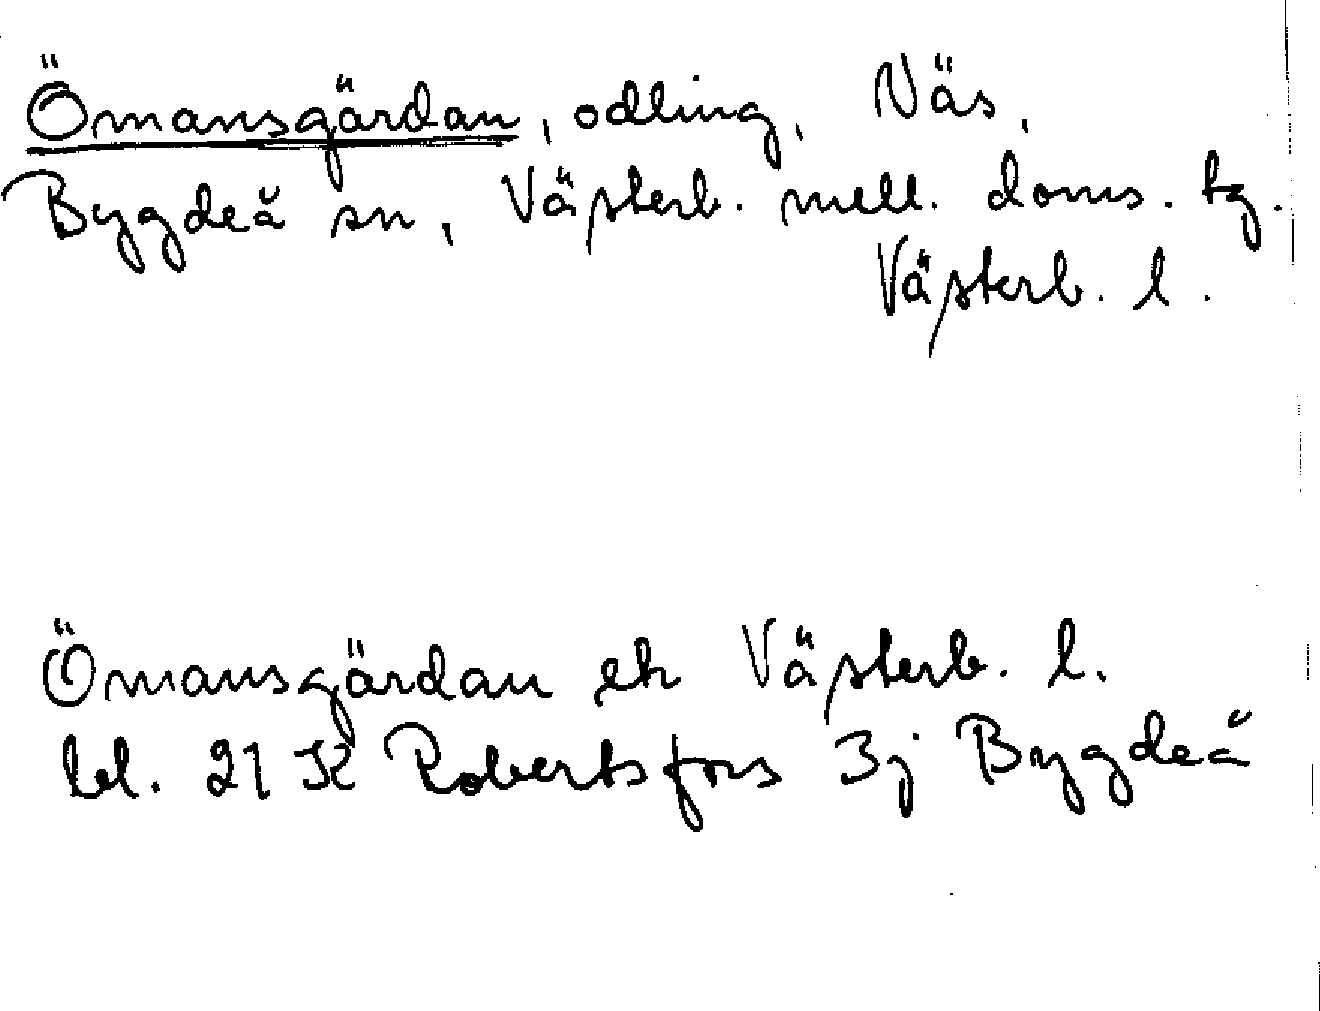 Ömansgärdan, odling, Näs,
Bygdeå sn, Västerb. mell. doms. tg.
Västerb. l.
Ömansgärdan ek Västerb. l.
bl. 21 K Robertsfors 3j Bygdeå